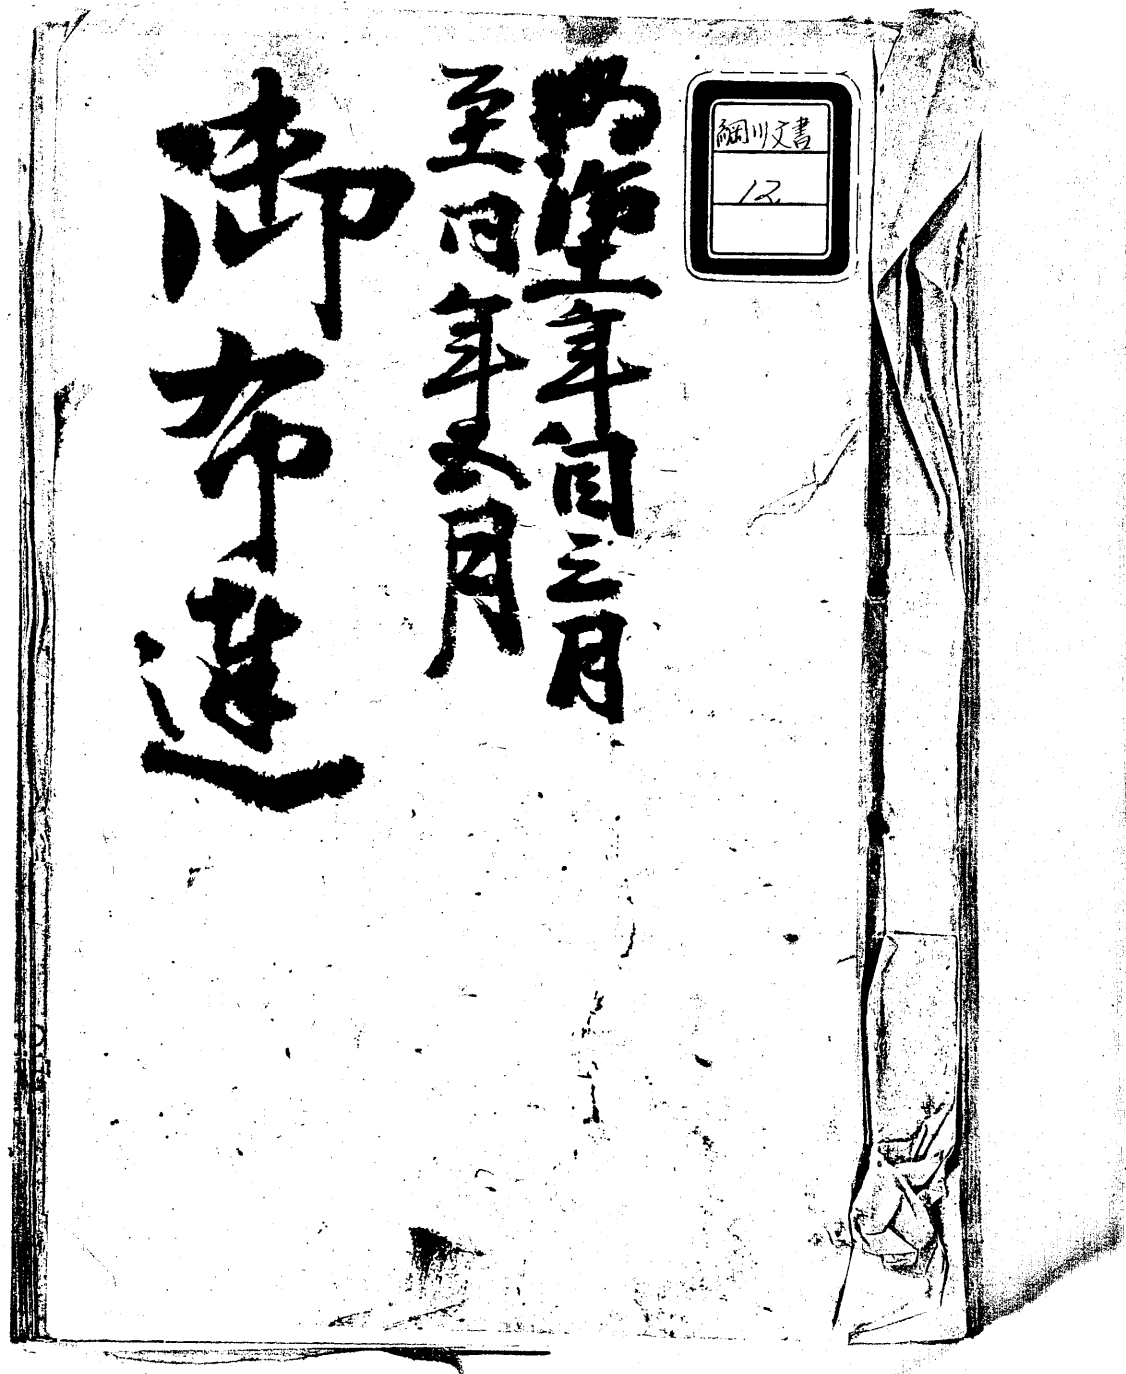 綱川文書
12.
明治十一年自三月
至同年五月
御布達